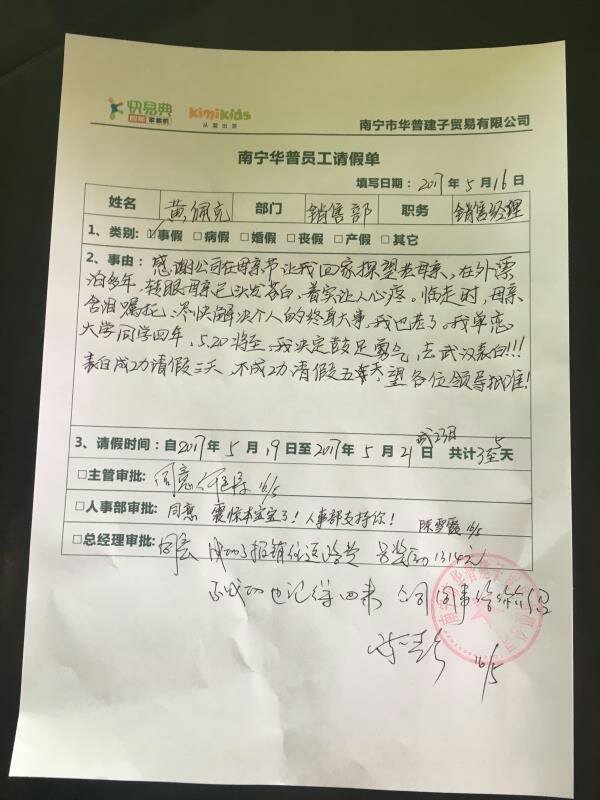 快易典
kimikids
从婴出发
南宁市华普建子贸易有限公司
南宁华普员工请假单
填写日期：2017年5月16日
姓名 黄佩克 部门 销售部 职务 销售经理
1、类别：☑事假 □病假 □婚假 □丧假 □产假 □其它
2、事由：感谢公司在母亲节让我回家探望老母亲，在外漂
泊多年，转眼母亲已头发苍白，着实让人心疼。临走时，母亲
含泪嘱托，尽快解决个人的终身大事，我也苦了。我单恋
大学同学四年，5.20将至，我决定鼓足勇气，去武汉表白!!!
表白成功请假三天，不成功请假五天，望各位领导批准!
3、请假时间：自2017年5月19日至2017年5月21日 共计3至5天
或23日
□主管审批：同意 16/5
□人事部审批：同意 震惊本宝宝了！人事部支持你！ 陈雪霞 16/5
□总经理审批：同意 成功了报销往返路费 另奖励1314元
不成功也记得回来 公司同事给你介绍
16/5